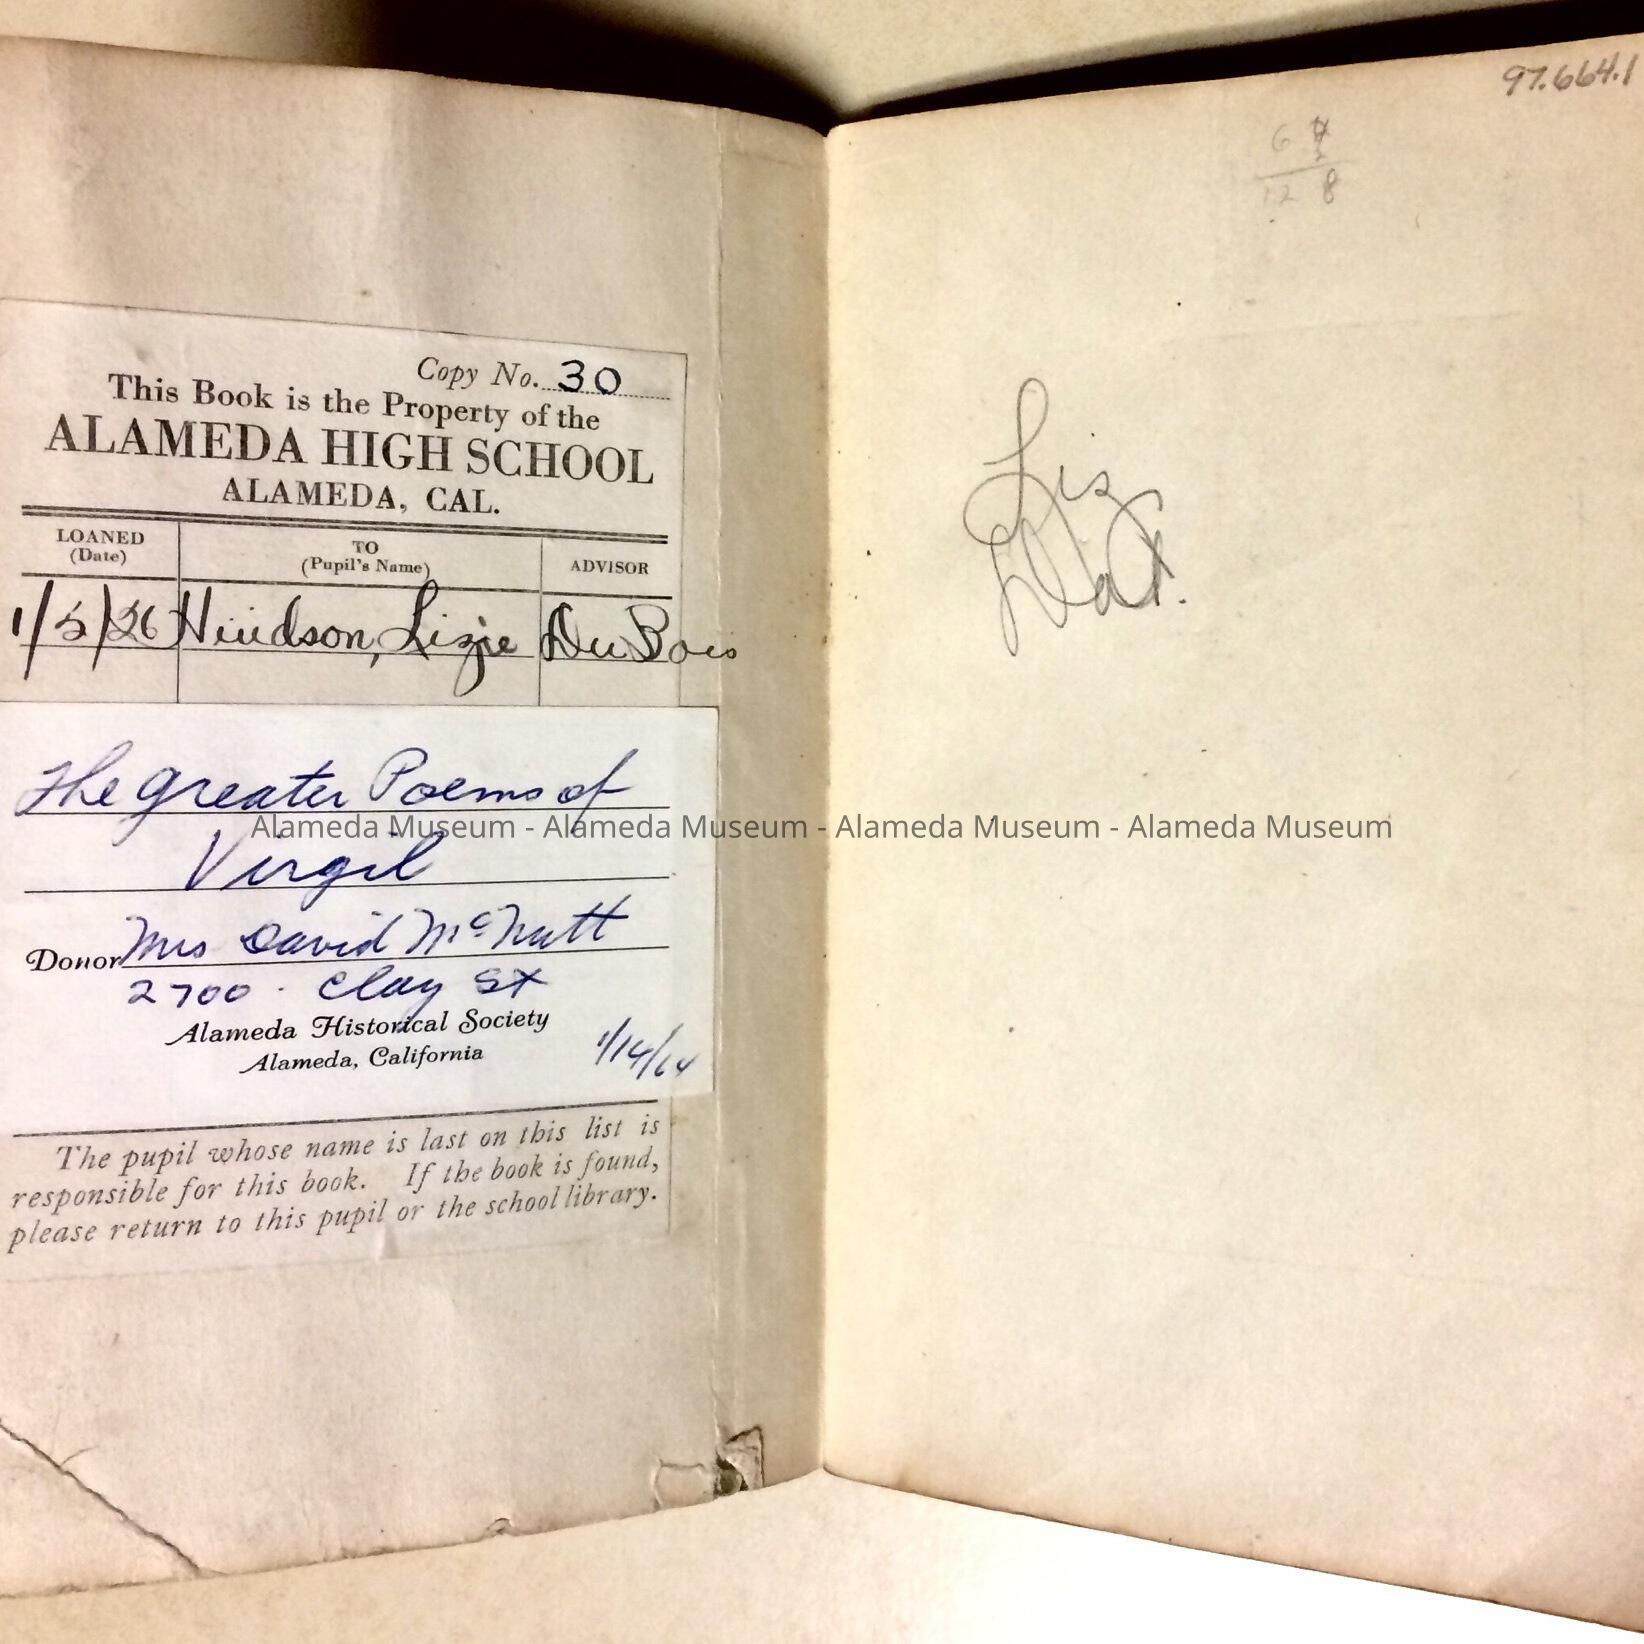 Copy No. 30
This Book is the Property of the
ALAMEDA HIGH SCHOOL
ALAMEDA, CAL.
LOANED (Date) TO (Pupil's Name) ADVISOR
1/5/26 Lizzie Du Bois
The Greater Poems of
Virgil
Donor Mrs David McNutt
2700 Clay St
Alameda Historical Society
Alameda, California
1/14/64
The pupil whose name is last on this list is
responsible for this book. If the book is found,
please return to this pupil or the school library.
97.664.1
6
12 8
Liz
Alameda Museum - Alameda Museum - Alameda Museum - Alameda Museum